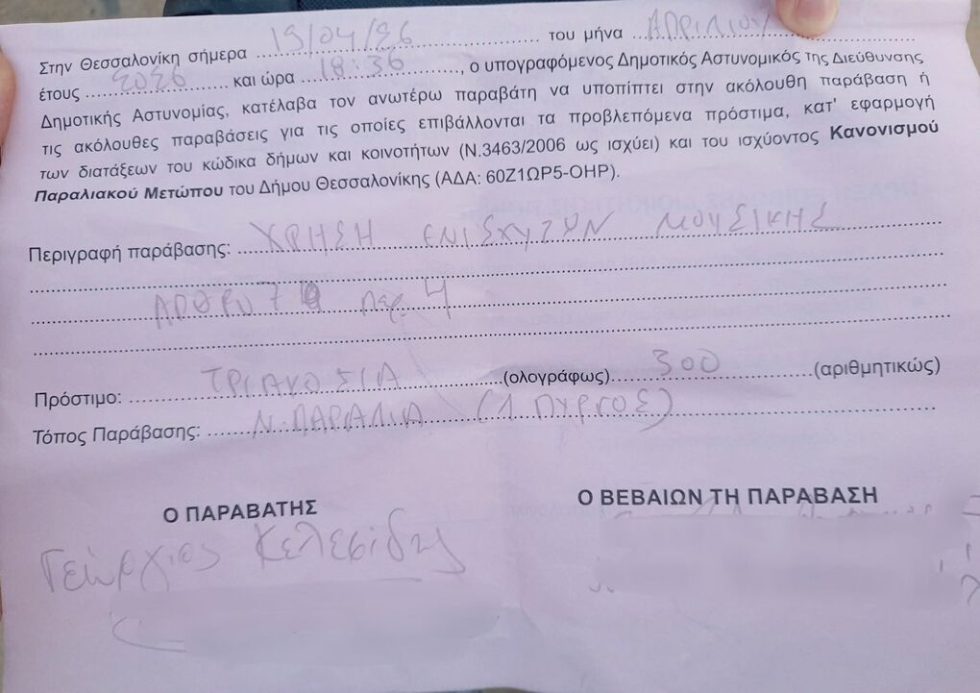 Στην Θεσσαλονίκη σήμερα 19/04/26 του μήνα ΑΠΡΙΛΙΟΥ
έτους 2026 και ώρα 18:36, ο υπογραφόμενος Δημοτικός Αστυνομικός της Διεύθυνσης
Δημοτικής Αστυνομίας, κατέλαβα τον ανωτέρω παραβάτη να υποπίπτει στην ακόλουθη παράβαση ή
τις ακόλουθες παραβάσεις για τις οποίες επιβάλλονται τα προβλεπόμενα πρόστιμα, κατ' εφαρμογή
των διατάξεων του κώδικα δήμων και κοινοτήτων (Ν.3463/2006 ως ισχύει) και του ισχύοντος Κανονισμού
Παραλιακού Μετώπου του Δήμου Θεσσαλονίκης (ΑΔΑ: 60Ζ1ΩΡ5-ΟΗΡ).
Περιγραφή παράβασης: ΧΡΗΣΗ ΕΝΙΣΧΥΤΩΝ ΜΟΥΣΙΚΗΣ
ΑΡΘΡΟ 7 παρ. 4
Πρόστιμο: ΤΡΙΑΚΟΣΙΑ (ολογράφως) 300 (αριθμητικώς)
Τόπος Παράβασης: Ν. ΠΑΡΑΛΙΑ (Λ. ΠΥΡΓΟΣ)
Ο ΠΑΡΑΒΑΤΗΣ Ο ΒΕΒΑΙΩΝ ΤΗ ΠΑΡΑΒΑΣΗ
Γεώργιος Κελεσίδης